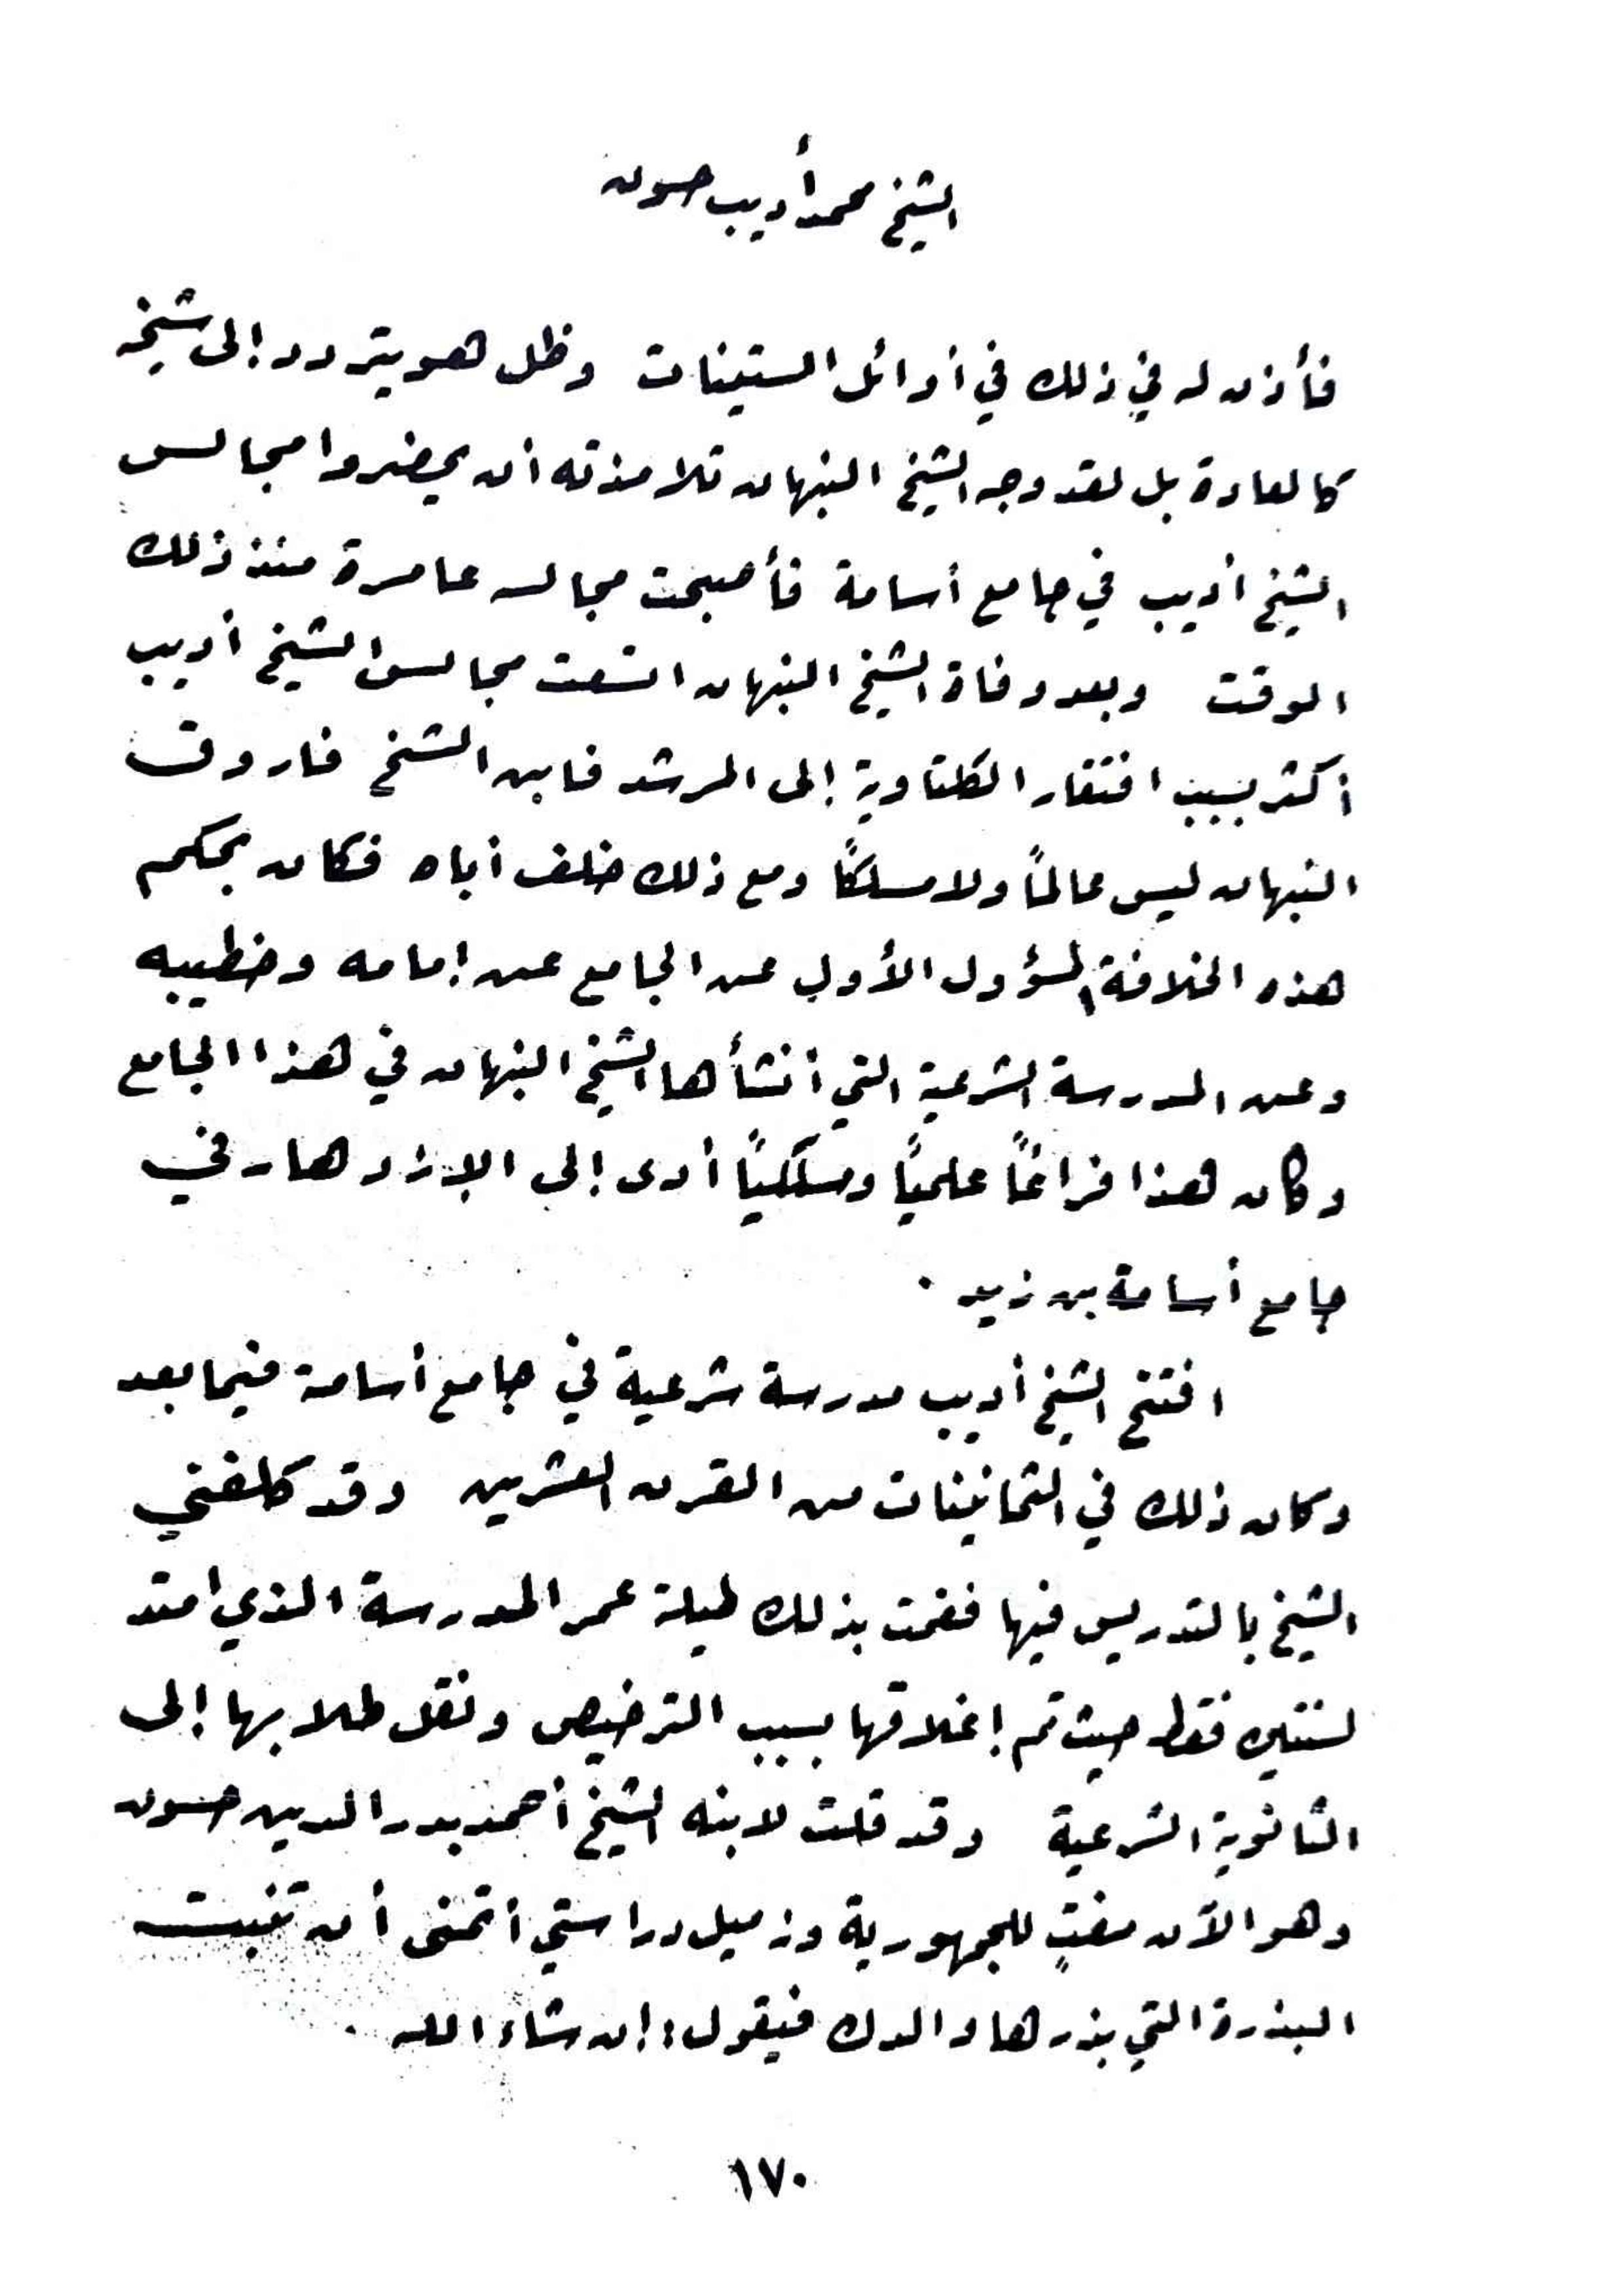 الشيخ محمد أديب حسون
فأذن له في ذلك في أوائل الستينات وظل هو يتردد إلى شيخه
كالعادة بل لقد وجه الشيخ النبهان تلامذته أن يحضروا مجالس
الشيخ أديب في جامع أسامة فأصبحت مجالسه عامرة منذ ذلك
الوقت وبعد وفاة الشيخ النبهان اتسعت مجالس الشيخ أديب
أكثر بسبب افتقار الكلتاوية إلى المرشد فابن الشيخ فاروق
النبهان ليس عالماً ولا مسلكاً ومع ذلك خلف أباه فكان بحكم
هذه الخلافة المسؤول الأول عن الجامع عن إمامه وخطيبه
وعن المدرسة الشرعية التي أنشأها الشيخ النبهان في هذا الجامع
وكان هذا فراغاً علمياً ومسلكياً أدى إلى الازدهار في
جامع أسامة بن زيد .
افتتح الشيخ أديب مدرسة شرعية في جامع أسامة فيما بعد
وكان ذلك في الثمانينات من القرن العشرين وقد كلفني
الشيخ بالتدريس فيها فقمت بذلك طيلة عمر المدرسة الذي امتد
لسنتين فقط حيث تم إغلاقها بسبب الترخيص ونقل طلابها إلى
الثانوية الشرعية وقد قلت لابنه الشيخ أحمد بدر الدين حسون
وهو الآن مفتٍ للجمهورية وزميل دراستي أتمنى أن تنبت
البذرة التي بذرها والدك فيقول : إن شاء الله .
١٧٠